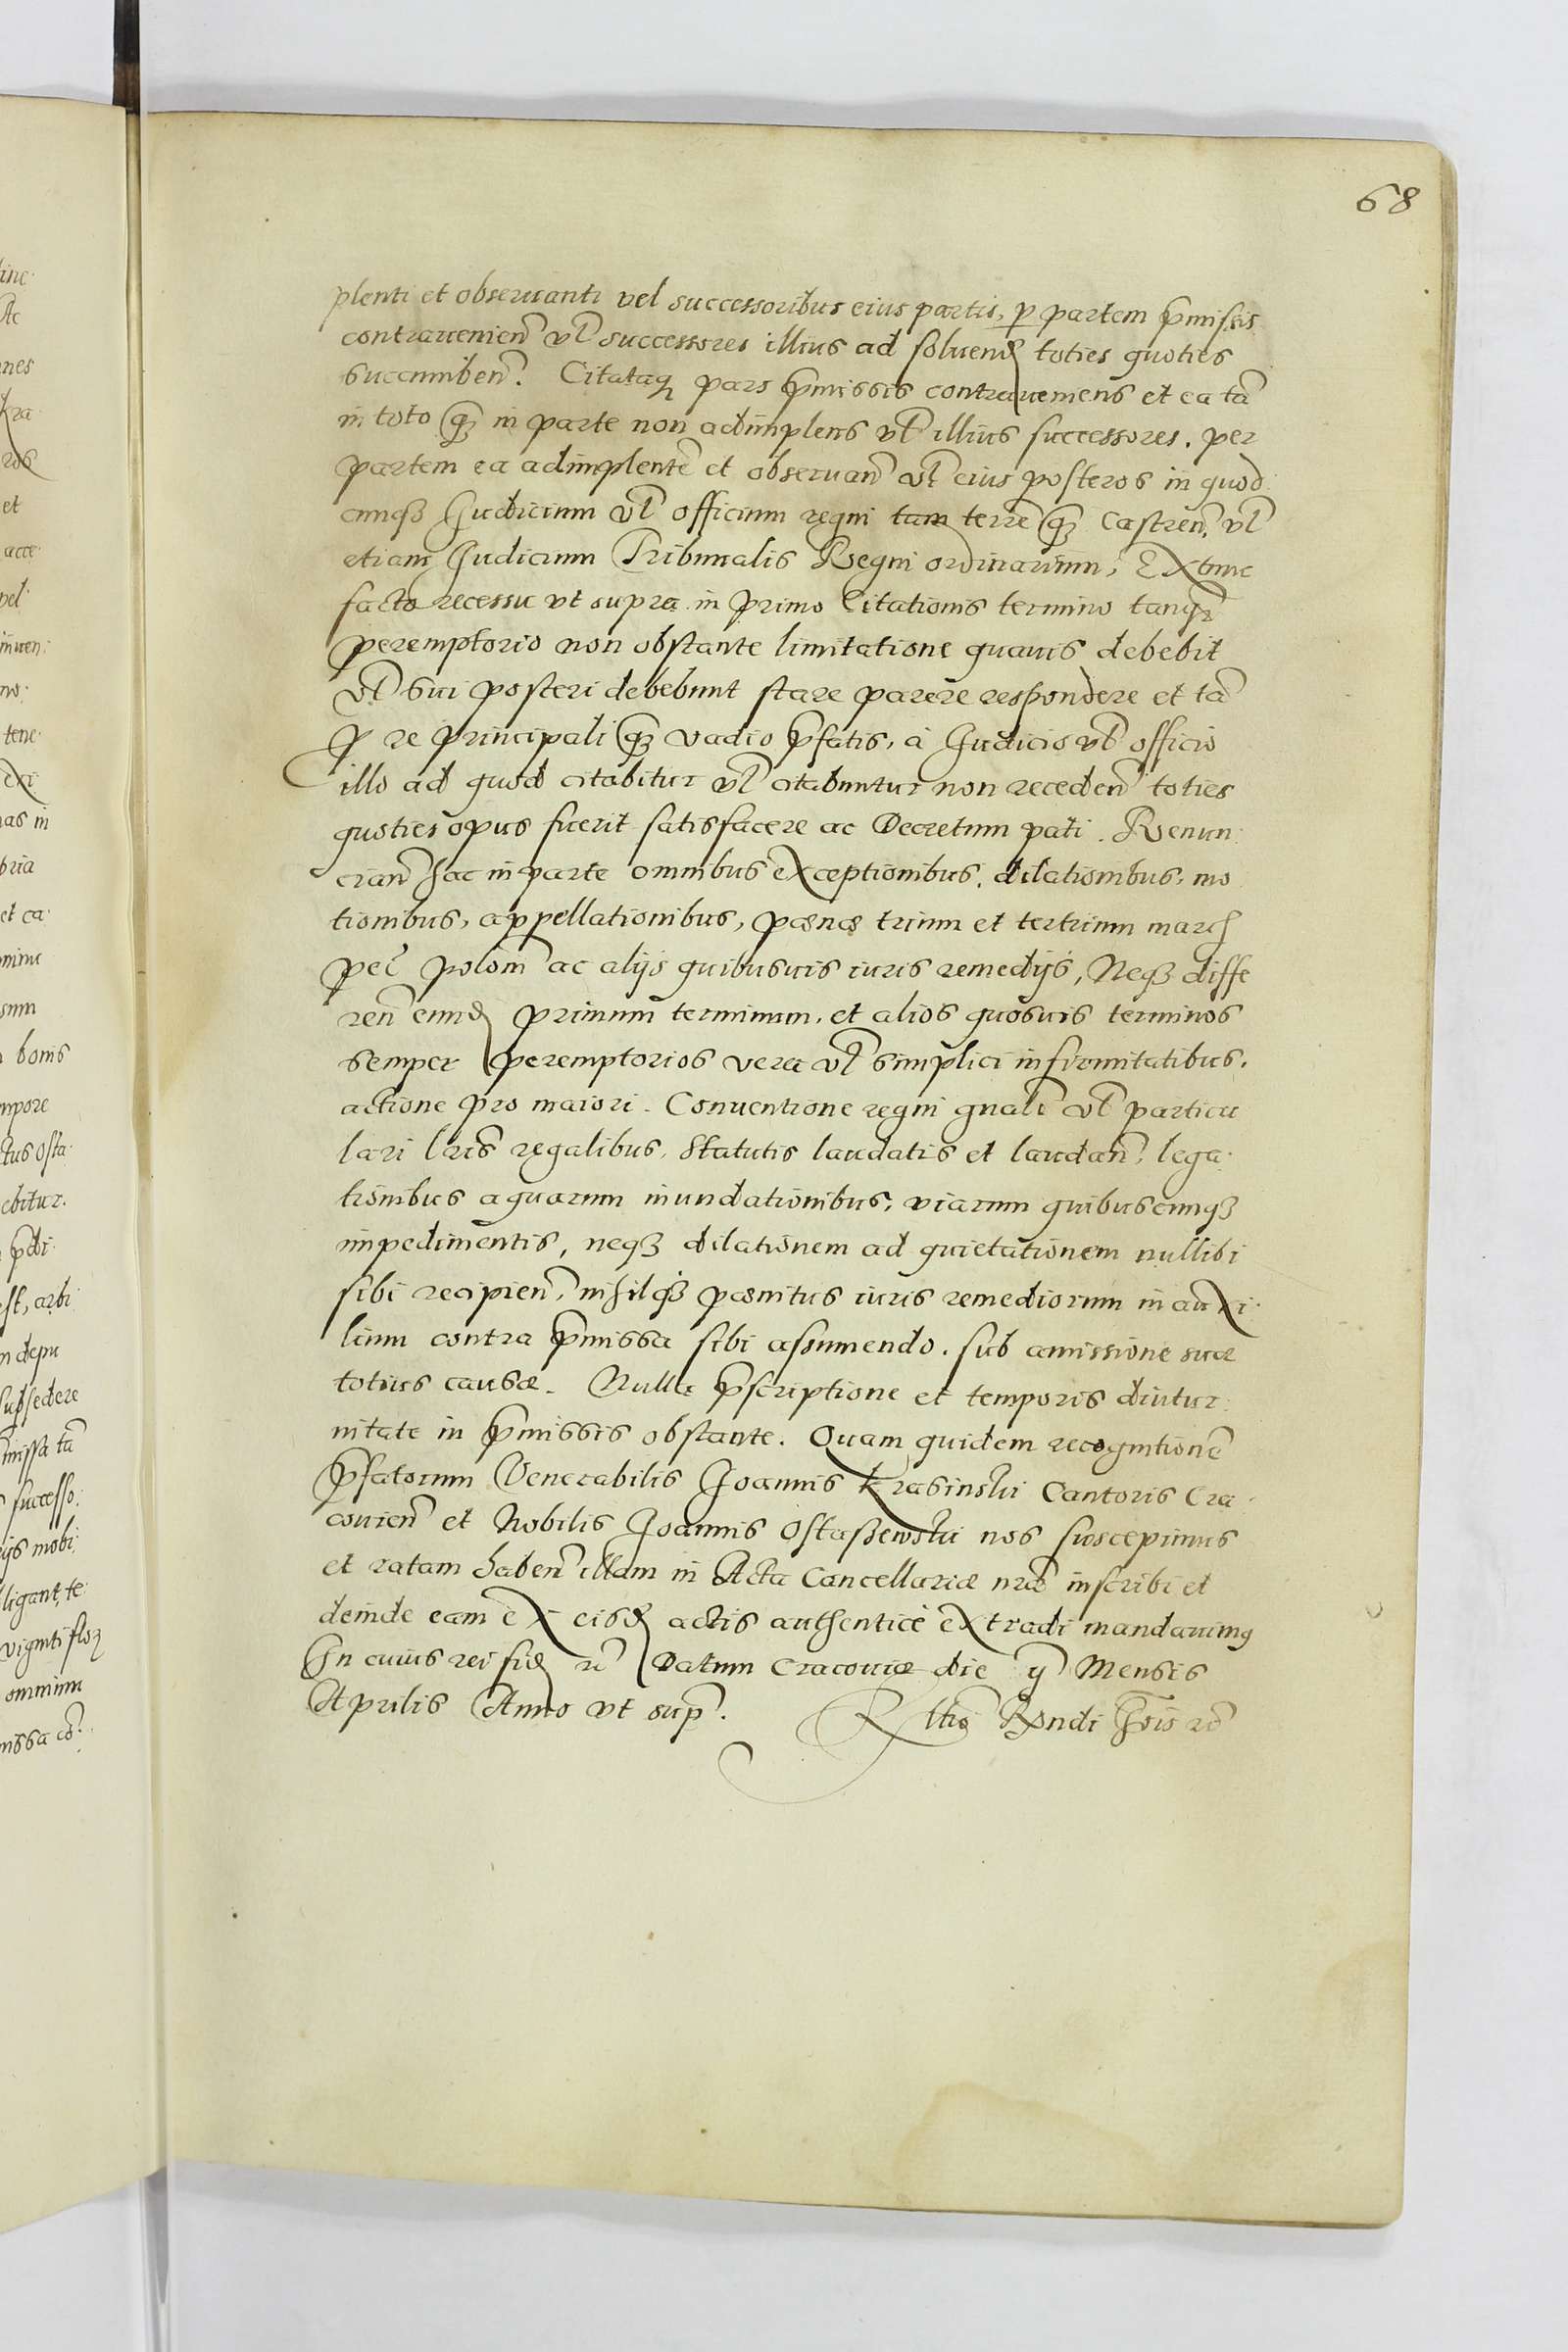 68
plenti et obseruanti vel successoribus eius partis, p partem pmissis
contrauenien vl successores illius ad soluend toties quoties
succumben. Citataq pars pmissis contraueniens et ea ta
in toto qz in parte non adimplens vl illius successores, per
partem ea adimplente et obseruan vl eius posteros in quod
cunqz Judicium vl officium regni tam terre qz Castren, vl
etiam Judicium Tribunalis Regni ordinarium, Extunc
facto recessu vt supra in primo Citationis termino tanqz
peremptorio non obstante limitatione quauis debebit
vl sui posteri debebunt stare parere respondere et ta
p re principali qz vadio pfatis, à Judicio vl officio
illo ad quod citabitur vl citabuntur non receden toties
quoties opus fuerit satisfacere ac Decretum pati. Renun
cian hac in parte omnibus exceptionibus, dilationibus, mo
tionibus, appellationibus, poenae trium et tertrium march
pec polom ac alijs quibusuis iuris remedijs, Neqz diffe
ren eund primum terminum, et alios quosuis terminos
semper peremptorios vera vl simplici infirmitatibus,
actione pro maiori. Conuentione regni gnali vl particu
lari lris regalibus, Statutis laudatis et laudan, lega
tionibus aquarum inundationibus, viarum quibuscunqz
impedimentis, neqz dilationem ad quietationem nullibi
sibi recipien, nihilqz poenitus iuris remediorum in auxi
lium contra pmissa sibi assumendo. sub amissione suae
totius causae. Nulla pscriptione et temporis diutur
nitate in pmissis obstante. Quam quidem recognitione
pfatorum Venerabilis Joannis Krasinski Cantoris Cra
couien et Nobilis Joannis Ostaszewski nos suscepimus
et ratam haben illam in Acta Cancellariae nrae inscribi et
deinde eam ex eisd actis authenticè extradi mandauimus
In cuius rei fid rc Datum Cracouiae die ij Mensis
Aprilis Anno vt sup.